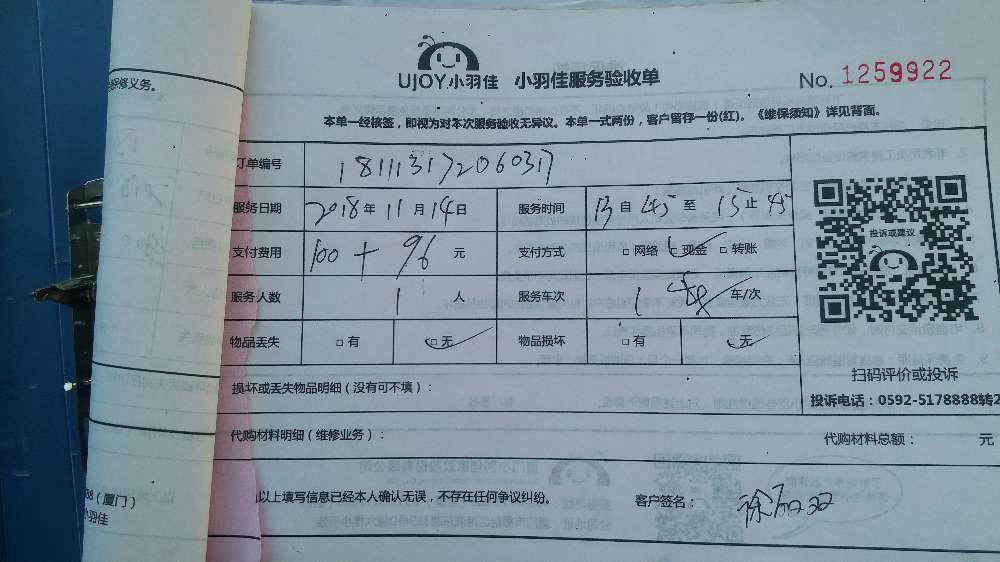 保修义务。
UJOY.小羽佳 小羽佳服务验收单 No. 1259922
本单一经核签，即视为对本次服务验收无异议。本单一式两份，客户留存一份(红)。《维保须知》详见背面。
订单编号 181113172060317
服务日期 2018年11月14日 服务时间 13自45至15止45
支付费用 100+96元 支付方式 □网络 □现金 □转账
投诉或建议
服务人数 1人 服务车次 1 车/次
物品丢失 □有 □无 物品损坏 □有 □无
扫码评价或投诉
损坏或丢失物品明细（没有可不填）：
投诉电话：0592-5178888转2
代购材料明细（维修业务）： 代购材料总额： 元
（厦门）
小羽佳
以上填写信息已经本人确认无误，不存在任何争议纠纷。 客户签名：